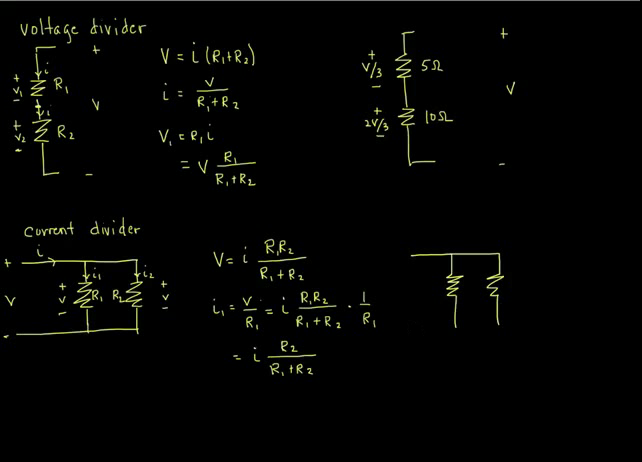 voltage divider
+
i
+
V₁
−
R₁
i
+
V₂
−
R₂
V
−
V = i (R₁+R₂)
i = V / (R₁+R₂)
V₁ = R₁ i
= V R₁ / (R₁+R₂)
+
+
V/3
−
5Ω
V
+
2V/3
−
10Ω
−
current divider
+
i
i₁
i₂
V
+
V
−
R₁
R₂
+
V
−
−
V = i R₁R₂ / (R₁+R₂)
i₁ = V/R₁ = i R₁R₂ / (R₁+R₂) · 1/R₁
= i R₂ / (R₁+R₂)